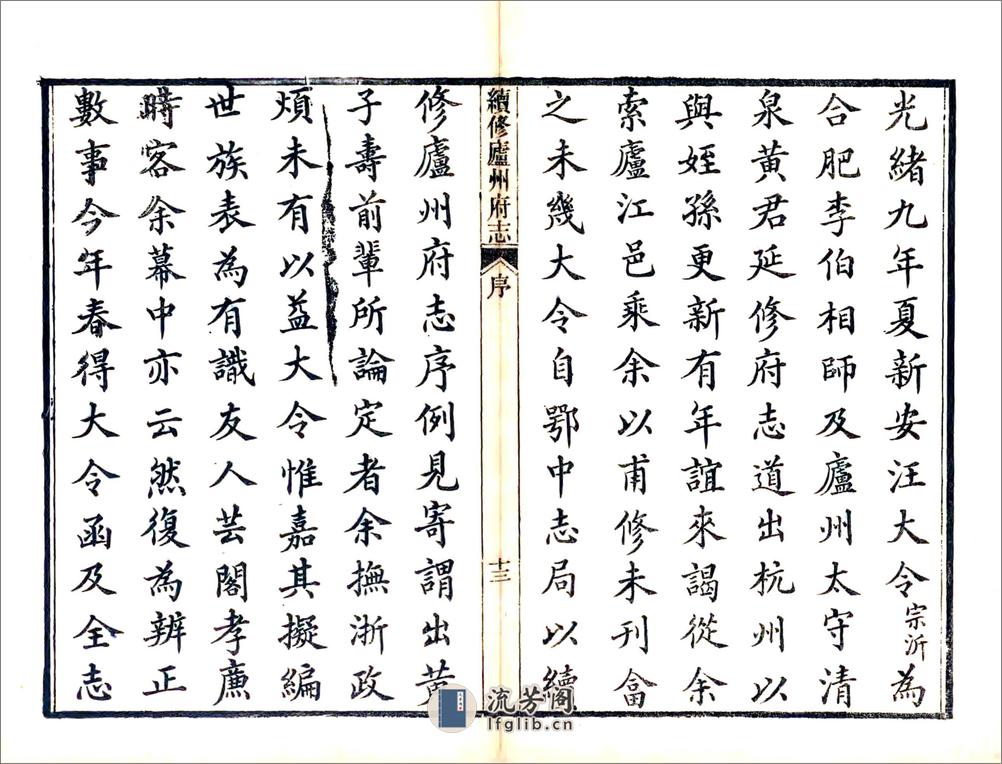 光緒九年夏新安汪大令宗沂為
合肥李伯相師及廬州太守清
泉黃君延修府志道出杭州以
與姪孫更新有年誼來謁從余
索廬江邑乘余以甫修未刊畣
之未幾大令自鄂中志局以續
續修廬州府志 序 十三
修廬州府志序例見寄謂出黃
子壽前輩所論定者余撫浙政
煩未有以益大令惟嘉其擬編
世族表為有識友人芸閣孝廉
時客余幕中亦云然復為辨正
數事今年春得大令函及全志
流芳閣
lfglib.cn